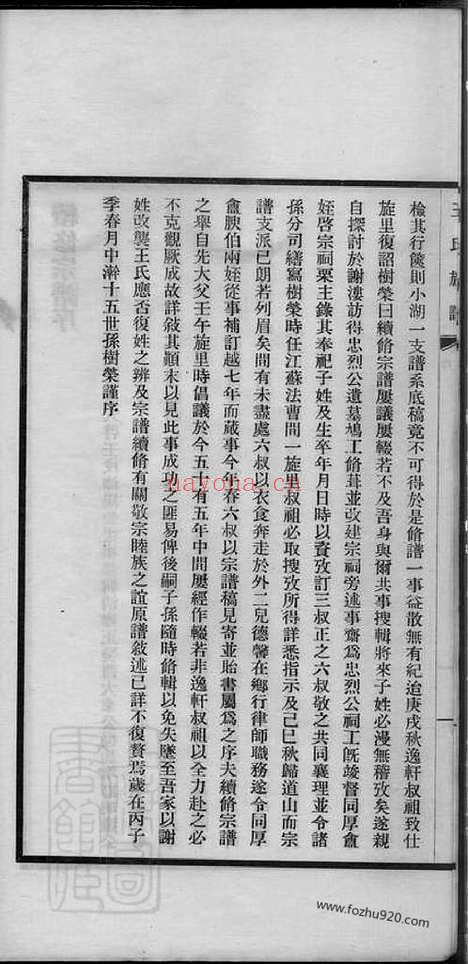 王氏族譜
檢其行篋則小湖一支譜系底稿竟不可得於是脩譜一事益散無有紀迨庚戌秋逸軒叔祖致仕
旋里復詔樹榮曰續脩宗譜屢議屢輟若不及吾身與爾共事搜輯將來子姓必漫無稽攷矣遂親
自探討於謝漊訪得忠烈公遺墓鳩工脩葺並改建宗祠旁述事齋爲忠烈公祠工旣竣督同厚畬
姪啓宗祠栗主錄其奉祀子姓及生卒年月日時以資攷訂三叔正之六叔敬之共同襄理並令諸
孫分司繕寫樹榮時任江蘇法曹間一旋里叔祖必取搜攷所得詳悉指示及己巳秋歸道山而宗
譜支派已朗若列眉矣間有未盡處六叔以衣食奔走於外二兒德馨在鄉行律師職務遂令同厚
畬腴伯兩姪從事補訂越七年而蕆事今年春六叔以宗譜稿見寄並貽書屬爲之序夫續脩宗譜
之舉自先大父壬午旋里時倡議於今五十有五年中間屢經作輟若非逸軒叔祖以全力赴之必
不克觀厥成故詳敍其顚末以見此事成功之匪易俾後嗣子孫隨時脩輯以免失墜至吾家以謝
姓改襲王氏應否復姓之辨及宗譜續脩有關敬宗睦族之誼原譜敍述已詳不復贅焉歲在丙子
季春月中澣十五世孫樹榮謹序
nayona.cn
www.fozhu920.com